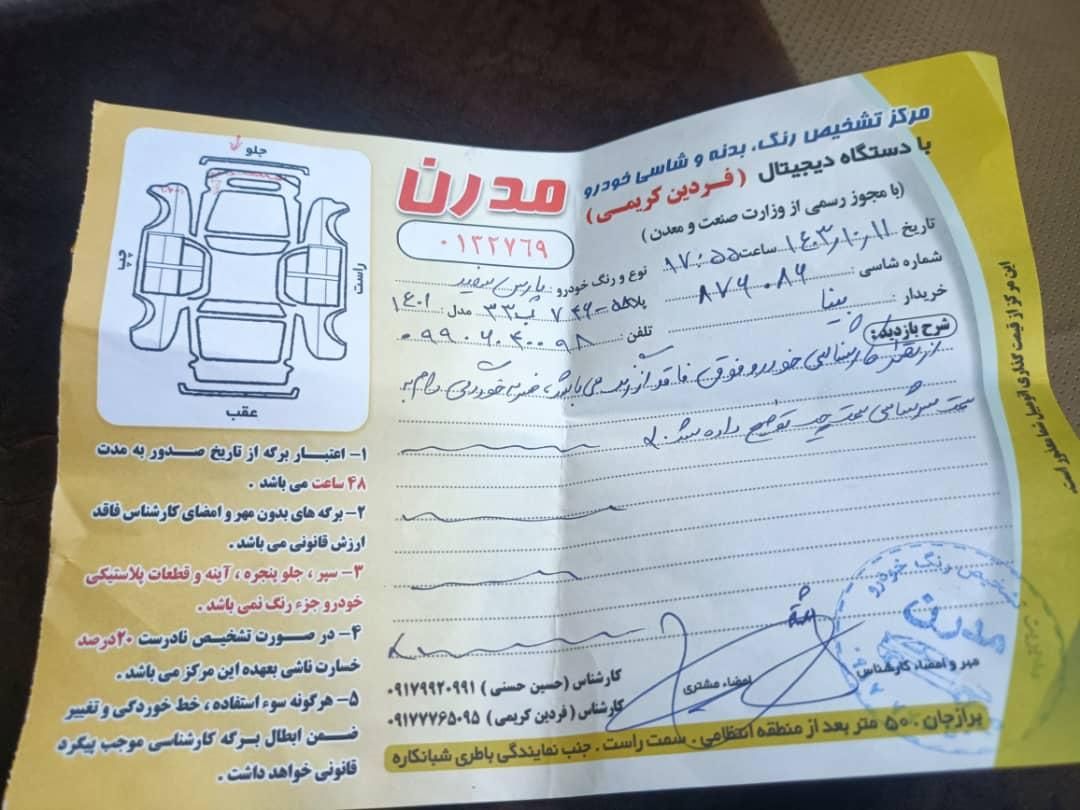 مرکز تشخیص رنگ، بدنه و شاسی خودرو
با دستگاه دیجیتال (فردین کریمی)
(با مجوز رسمی از وزارت صنعت و معدن)
مدرن
۰۱۳۲۷۶۹
تاریخ ۱۴۰۳/۱۰/۱۱ ساعت ۱۷:۵۵ نوع و رنگ خودرو: پارس سفید
شماره شاسی: ۸۷۶۰۸۶ پلاک ۵۸-۷۴۶ ب ۳۳ مدل: ۱۴۰۱
خریدار: بینا تلفن: ۰۹۹۰۶۰۴۰۰۹۸
شرح بازدید:
از نظر کارشناسی خودرو فوق فاقد رنگ می باشد، ضربه خوردگی رام بر
سمت سرشاسی سمت چپ توضیح داده شد.
جلو
چپ
راست
عقب
۱- اعتبار برگه از تاریخ صدور به مدت
۴۸ ساعت می باشد.
۲- برگه های بدون مهر و امضای کارشناس فاقد
ارزش قانونی می باشد.
۳- سپر، جلو پنجره، آینه و قطعات پلاستیکی
خودرو جزء رنگ نمی باشد.
۴- در صورت تشخیص نادرست ۲۰درصد
خسارت ناشی بعهده این مرکز می باشد.
۵- هرگونه سوء استفاده، خط خوردگی و تغییر
ضمن ابطال برگه کارشناسی موجب پیگرد
قانونی خواهد داشت.
کارشناس (حسین حسنی) ۰۹۱۷۹۹۲۰۹۹۱
کارشناس (فردین کریمی) ۰۹۱۷۷۷۶۵۰۹۵
امضاء مشتری
مهر و امضاء کارشناس
تشخیص رنگ خودرو
مدرن
برازجان. ۵۰ متر بعد از منطقه انتظامی. سمت راست. جنب نمایندگی باطری شبانکاره
این مرکز از قیمت گذاری اتومبیل شما معذور است.